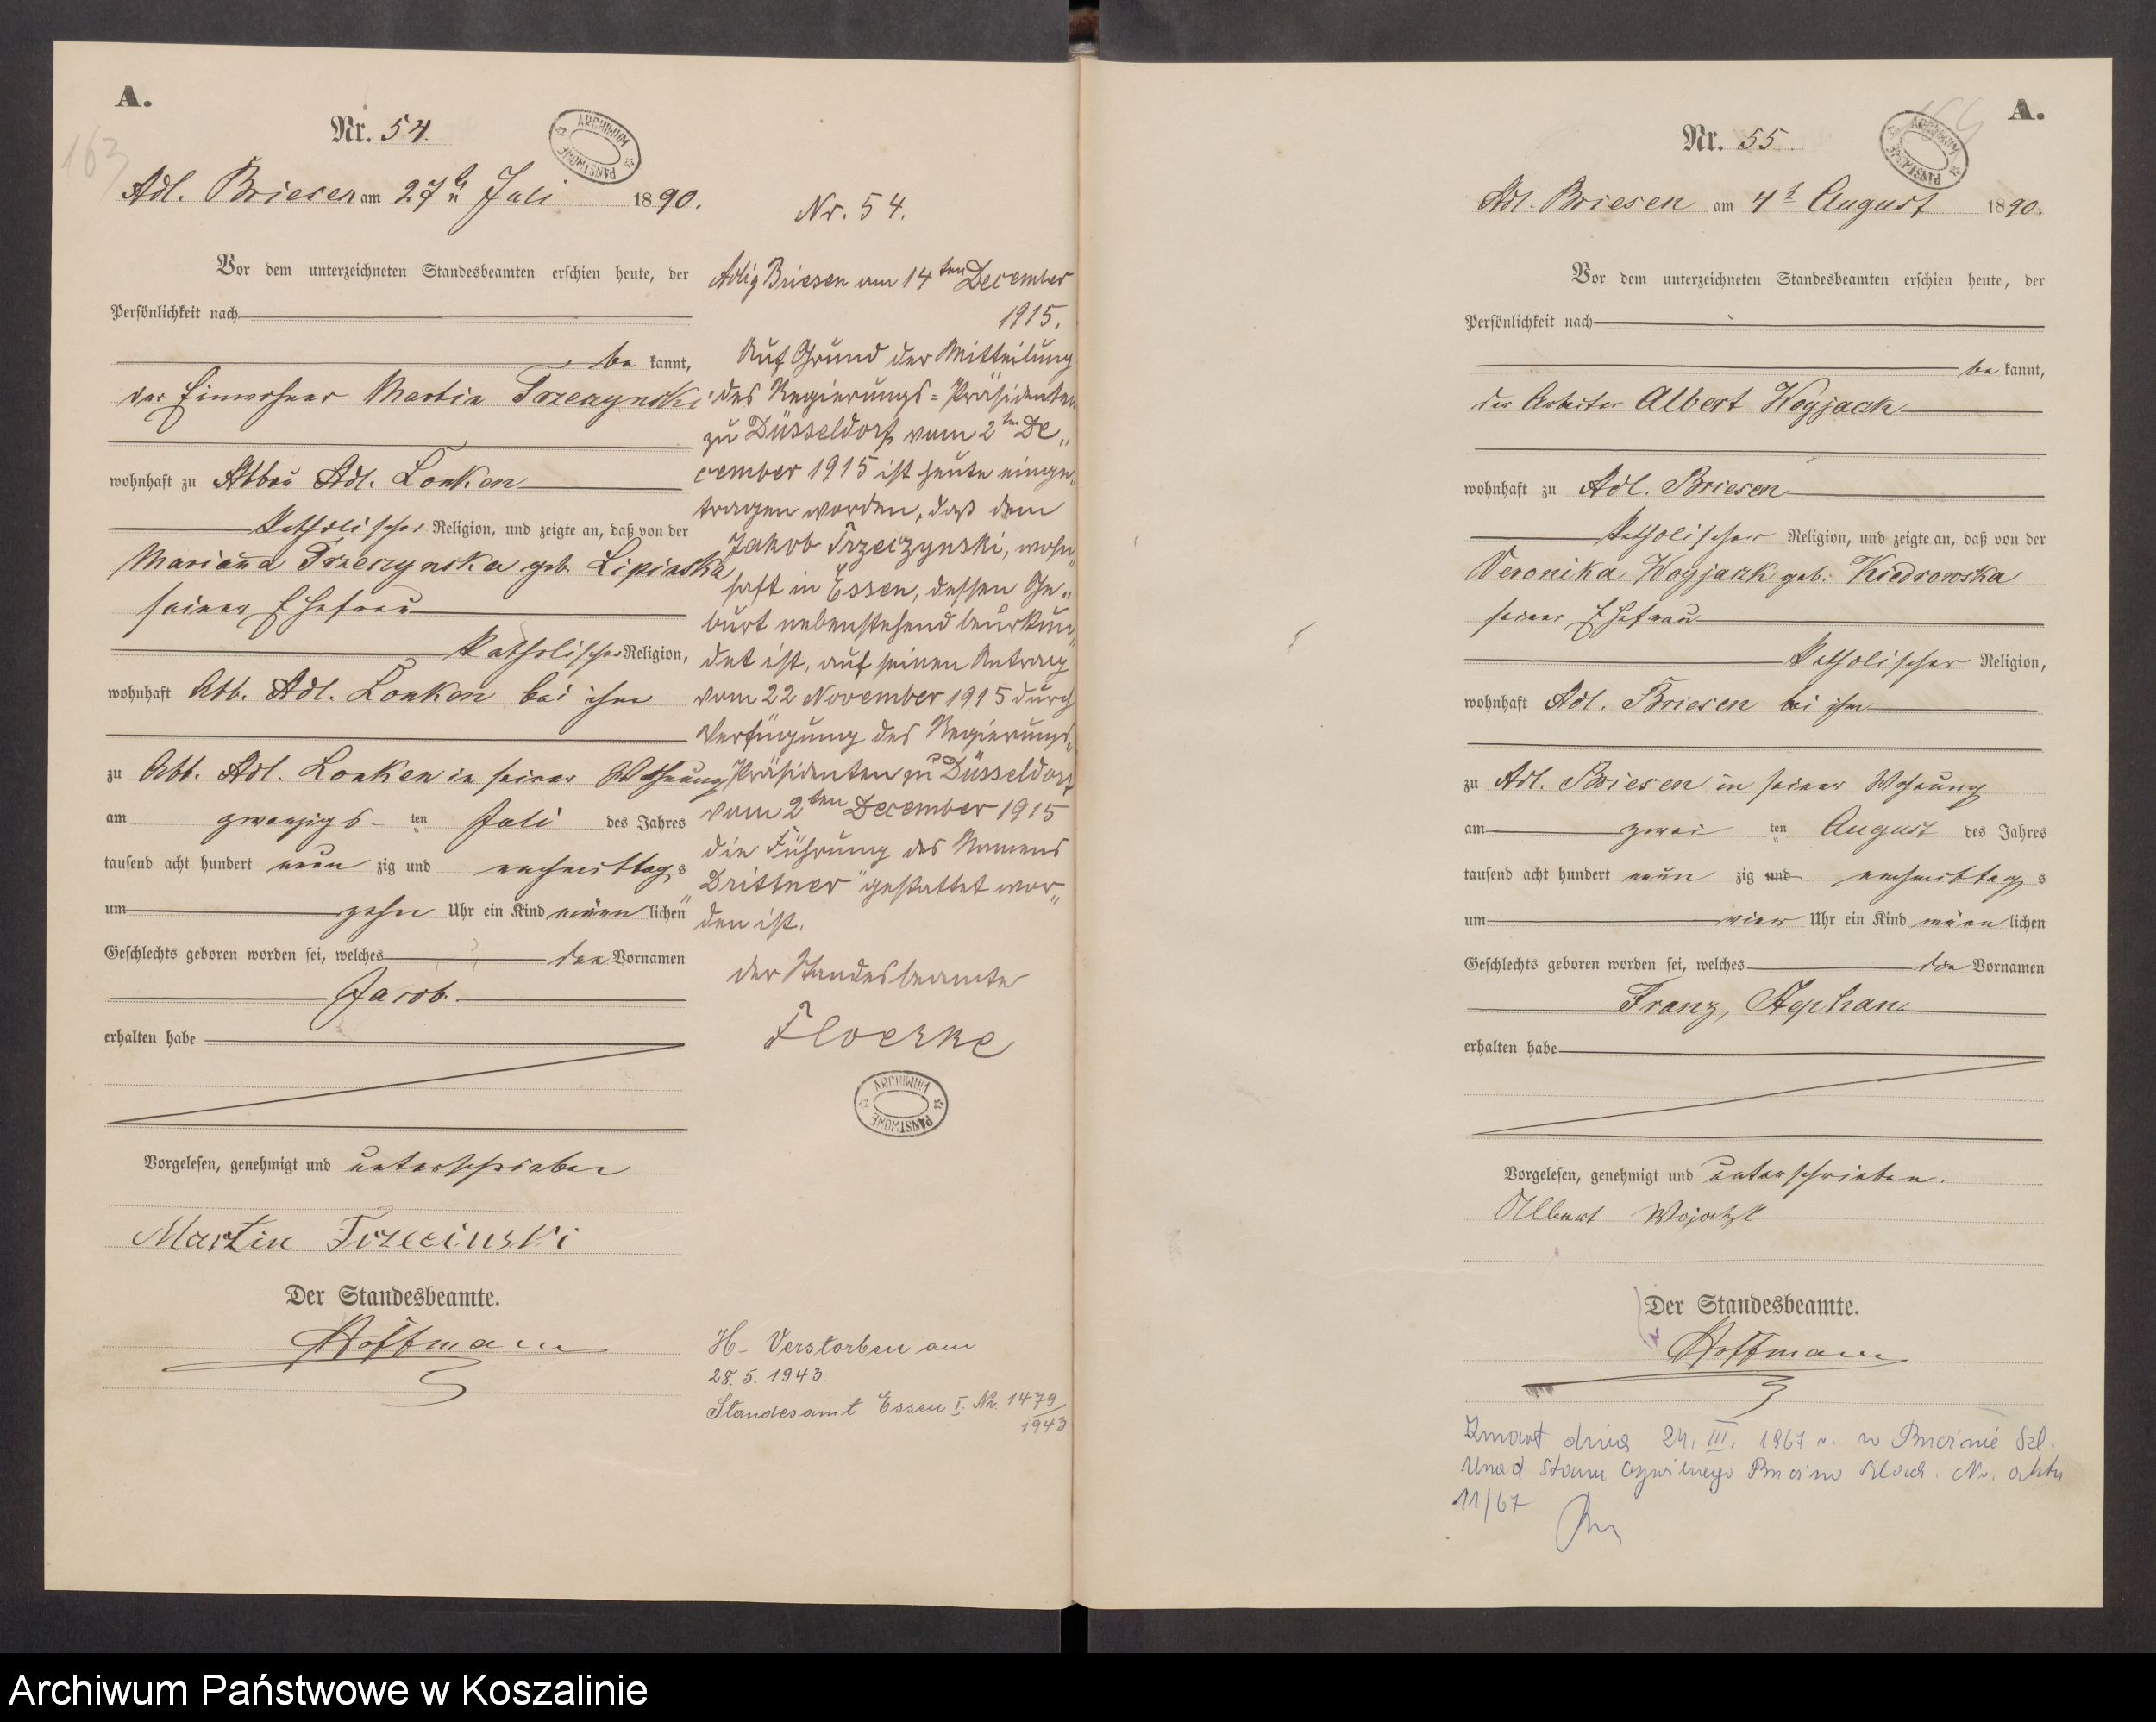 A.
163
Nr. 54.
ARCHIWUM PAŃSTWOWE
Adl. Briesen am 27ten Juli 1890.
Vor dem unterzeichneten Standesbeamten erschien heute, der
Persönlichkeit nach
be kannt,
der Einwohner Martin Trzeczynski
wohnhaft zu Abbau Adl. Lonken
katholischer Religion, und zeigte an, daß von der
Marianna Trzeczynska geb. Lipinska
seiner Ehefrau
katholischer Religion,
wohnhaft Abb. Adl. Lonken bei ihm
zu Abb. Adl. Lonken in seiner Wohnung
am zwanzigs ten Juli des Jahres
tausend acht hundert neun zig und nachmittag s
um zehn Uhr ein Kind männ lichen
Geschlechts geboren worden sei, welches den Vornamen
Jacob
erhalten habe
Vorgelesen, genehmigt und unterschrieben
Martin Trzecinski
Der Standesbeamte.
Hoffmann
Nr. 54.
Adlig Briesen am 14ten December
1915.
Auf Grund der Mitteilung
des Regierungs=Präsidenten
zu Düsseldorf vom 2ten De„
cember 1915 ist heute einge„
tragen worden, daß dem
Jakob Trzeczynski, wohn„
haft in Essen, dessen Ge„
burt nebenstehend beurkun„
det ist, auf seinen Antrag
vom 22 November 1915 durch
Verfügung des Regierungs„
Präsidenten zu Düsseldorf
vom 2ten December 1915
die Führung des Namens
„Drittner" gestattet wor„
den ist.
Der Standesbeamte
Floerke
ARCHIWUM PAŃSTWOWE
H- Verstorben am
28.5.1943.
Standesamt Essen I. Nr. 1479/
1943
A.
Nr. 55.
ARCHIWUM PAŃSTWOWE
Adl. Briesen am 4t August 1890.
Vor dem unterzeichneten Standesbeamten erschien heute, der
Persönlichkeit nach
be kannt,
der Arbeiter Albert Woyjack
wohnhaft zu Adl. Briesen
katholischer Religion, und zeigte an, daß von der
Veronika Woyjack geb. Kiedrowska
seiner Ehefrau
katholischer Religion,
wohnhaft Adl. Briesen bei ihm
zu Adl. Briesen in seiner Wohnung
am zwei ten August des Jahres
tausend acht hundert neun zig und nachmittag s
um vier Uhr ein Kind männ lichen
Geschlechts geboren worden sei, welches die Vornamen
Franz, Stephan
erhalten habe
Vorgelesen, genehmigt und unterschrieben.
Albert
Der Standesbeamte.
Hoffmann
Zmarł dnia 24. III. 1967 r. w
Urząd Stanu Cywilnego Nr. aktu
11/67
Archiwum Państwowe w Koszalinie